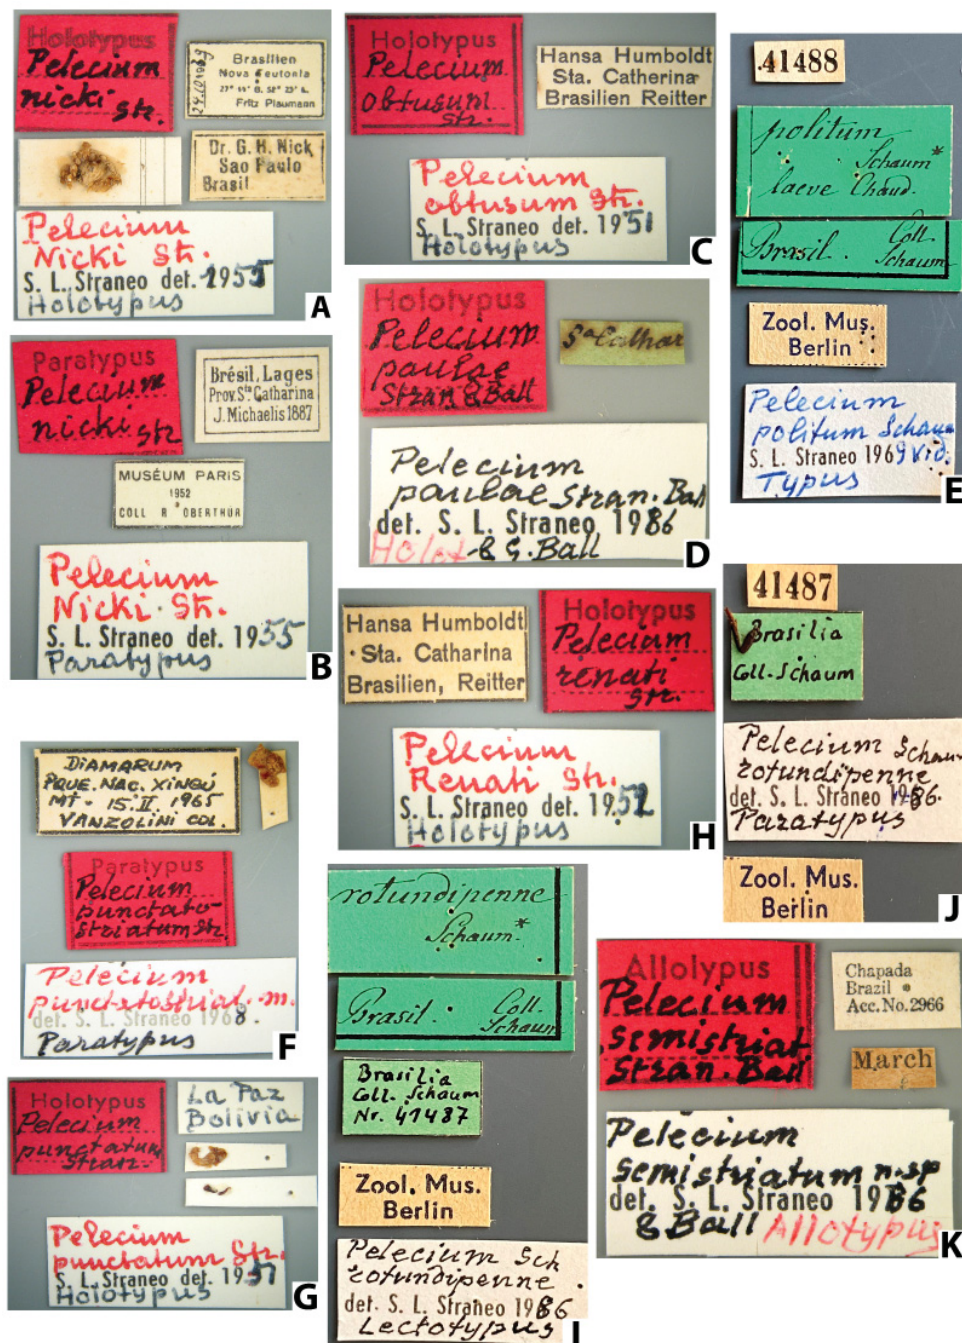 Holotypus
Pelecium
nicki
Str.
24.10.1939
Brasilien
Nova Teutonia
27° 11' B. 52° 23' L.
Fritz Plaumann
Dr. G. H. Nick
Sao Paulo
Brasil
Pelecium
Nicki St.
S. L. Straneo det. 1955
Holotypus
A
Paratypus
Pelecium
nicki
Str
Brésil, Lages
Prov. Sta Catharina
J. Michaelis 1887
MUSÉUM PARIS
1952
COLL R OBERTHUR
Pelecium
Nicki St.
S. L. Straneo det. 1955
Paratypus
B
Holotypus
Pelecium
obtusum
Str.
Hansa Humboldt
Sta. Catherina
Brasilien Reitter
Pelecium
obtusum Str.
S. L. Straneo det. 1951
Holotypus
C
Holotypus
Pelecium
paulae
Stran & Ball
Sta Cathar
Pelecium
paulae Stran. Ball
det. S. L. Straneo 1986
Holot & G. Ball
D
41488
politum
Schaum*
laeve Chaud.
Brasil. Coll.
Schaum
Zool. Mus.
Berlin
Pelecium
politum Schau
S. L. Straneo 1969 vid.
Typus
E
DIAMARUM
PQUE. NAC. XINGÚ
MT - 15.II.1965
VANZOLINI COL.
Paratypus
Pelecium
punctato-
striatum Str.
Pelecium
punctatostriat.m.
det. S. L. Straneo 1968.
Paratypus
F
Holotypus
Pelecium
punctatum
Stran.
La Paz
Bolivia
Pelecium
punctatum Str.
S. L. Straneo det. 1951
Holotypus
G
Hansa Humboldt
Sta. Catharina
Brasilien, Reitter
Holotypus
Pelecium
renati
Str.
Pelecium
Renati Str.
S. L. Straneo det. 1952
Holotypus
H
rotundipenne
Schaum.*
Brasil. Coll.
Schaum
Brasilia
Coll. Schaum
Nr. 41487
Zool. Mus.
Berlin
Pelecium Sch
rotundipenne.
det. S. L. Straneo 1986
Lectotypus
I
41487
Brasilia
Coll. Schaum
Pelecium Schau
rotundipenne
det. S. L. Straneo 1986.
Paratypus
Zool. Mus.
Berlin
J
Allotypus
Pelecium
semistriat
Stran. Ball
Chapada
Brazil
Acc. No. 2966
March
Pelecium
semistriatum n.sp
det. S. L. Straneo 1986
& Ball Allotypus
K